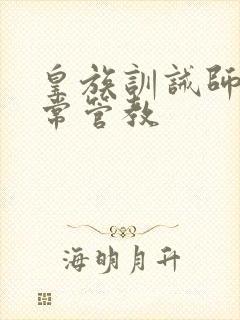 皇族訓誡師
常管教
海明月升